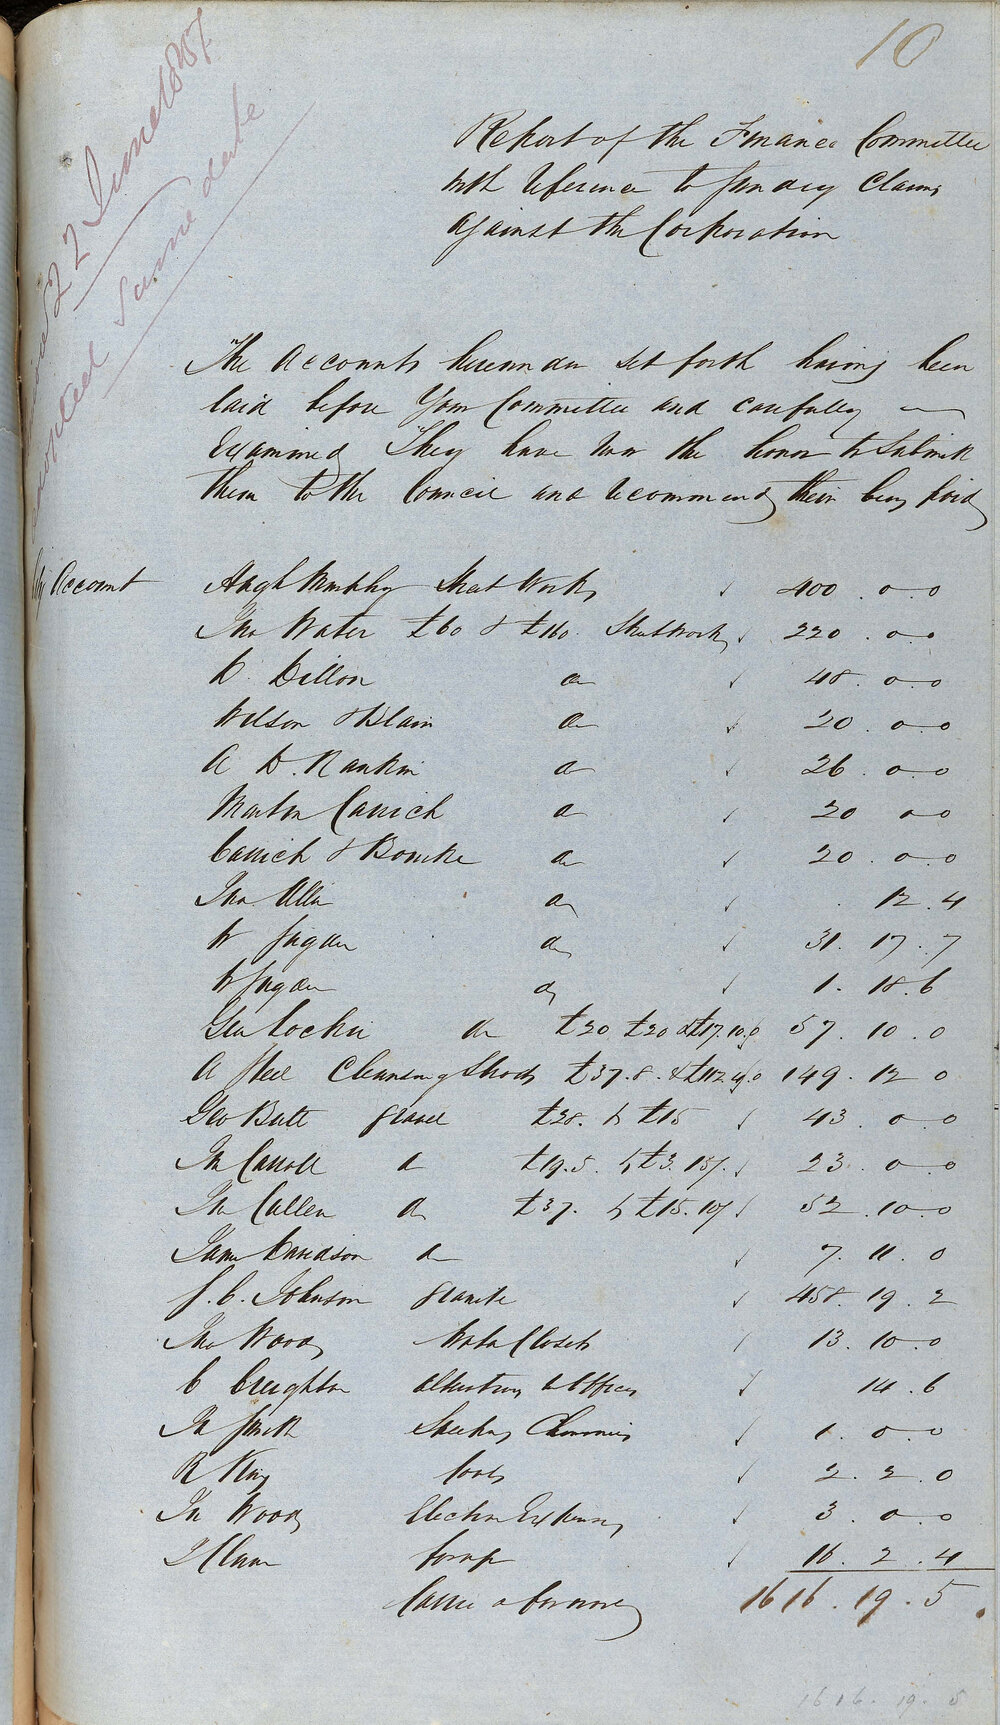 10
22 June 1857
same date
Report of the Finance Committee
with reference to Sundry Claims
against the Corporation
The Accounts hereunder set forth having been
laid before Your Committee and carefully
Examined They have now the honor to Submit
them to the Council and recommend their being paid
City Account Hugh Murphy Street Works 400 . 0 . 0
Jno Water £60 & £160. Street Works 220 . 0 . 0
D. Dillon do 48 . 0 . 0
Wilson & Blain do 20 . 0 . 0
A D. Rankin do 26 . 0 . 0
Martin Carrick do 20 0 0
Carrick & Bourke do 20 . 0 . 0
Jno Allen do 12 . 4
W Fagan do 31 . 17 . 7
W Fagan do 1 . 18 . 6
Geo Cockin do £20 £20 & £17.10.0 57 . 10 . 0
A Steel Cleansing Streets £37.8. & £112.4.0 149 . 12 0
Geo Butt gravel £28. & £15 43 . 0 . 0
Jn Carroll do £19.5. & £3.15/. 23 . 0 . 0
Jn Cullen do £37. & £15.10/ 52 . 10 . 0
James Davidson do 7 . 11 . 0
S. C. Johnson granite 458 . 19 . 2
Jno Wood Water Closets 13 . 10 . 0
C Creighton Alterations to Offices 14 . 6
Jn Smith Sweeping Chimneys 1 . 0 . 0
R King tools 2 . 2 . 0
Jn Wood Election Expenses 3 . 0 . 0
16 . 2 . 4
Carried forward 1616 . 19 . 5
1616 . 19 . 5